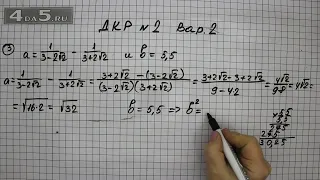 4da5.ru
ДКР №2 Вар.2.
③ a = 1/(3-2√2) - 1/(3+2√2) и b = 5,5
a = 1/(3-2√2) - 1/(3+2√2) = (3+2√2 - (3-2√2))/((3-2√2)(3+2√2)) = (3+2√2 - 3+2√2)/(9-4·2) = 4√2/(9-8) = 4√2 =
= √16·2 = √32 b = 5,5 => b² =
× 5,5
5,5
275
275
30,25